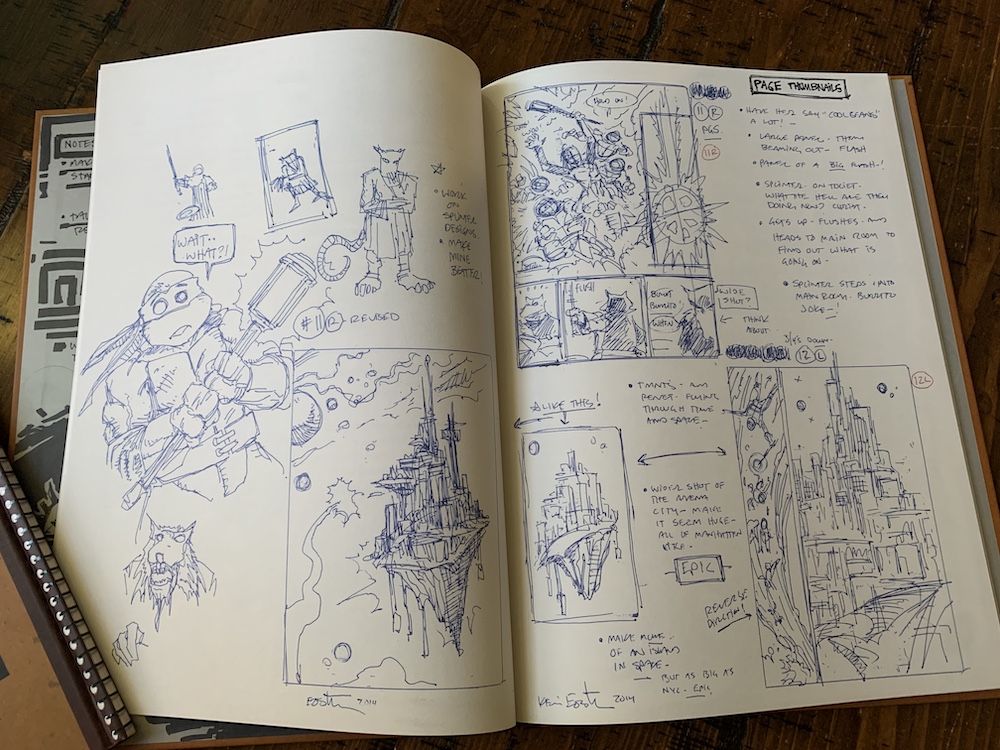 NOTES
WAIT..
WHAT?!
• WORK
ON
SPLINTER
DESIGNS.
• MAKE
MINE
BETTER!
#11 R - REVISED
EASTMAN 2014
HOLD ON!
11 R
PGS.
11R
FLUSH
BURNT
BURRITO?
WIDE
SHOT?
← THINK
ABOUT.
PAGE THUMBNAILS
• HAVE HER SAY - "COOL BEANS"
A LOT! -
• LARGE PANEL - THEM
BEAMING OUT - FLASH
• PANEL OF A BIG FLASH -!
• SPLINTER ON TOILET.
WHAT THE HELL ARE THEY
DOING NOW?
• GETS UP - FLUSHES - AND
HEADS TO MAIN ROOM TO
FIND OUT WHAT IS
GOING ON -
• SPLINTER STEPS INTO
MAIN ROOM. BURRITO
JOKE -!
3/4'S DOWN-
12 L
12L
LIKE THIS!
• TMNT'S - AND
RENET - FLYING
THROUGH TIME
AND SPACE -
• WIDER SHOT OF
THE ARENA
CITY - MAKE
IT SEEM HUGE -
ALL OF MANHATTAN
LIKE -
EPIC
REVERSE
DIRECTION!
• MAKE MORE
OF AN ISLAND
IN SPACE -
BUT AS BIG AS
NYC - EPIC!
KEVIN EASTMAN 2014